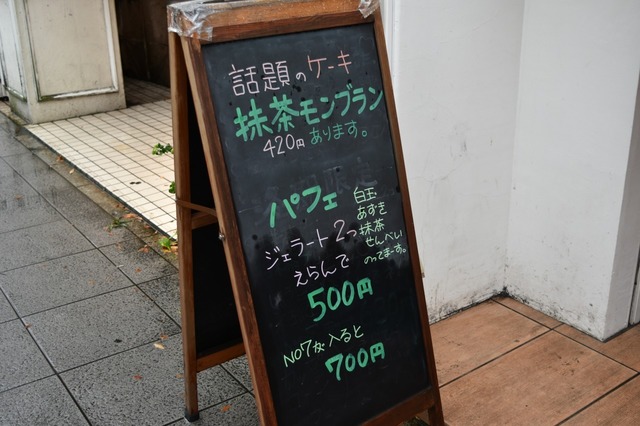 話題のケーキ
抹茶モンブラン
420円あります。
パフェ
白玉
あずき
抹茶
せんべい
のってまーす。
ジェラート2つ
えらんで
500円
No7が入ると
700円